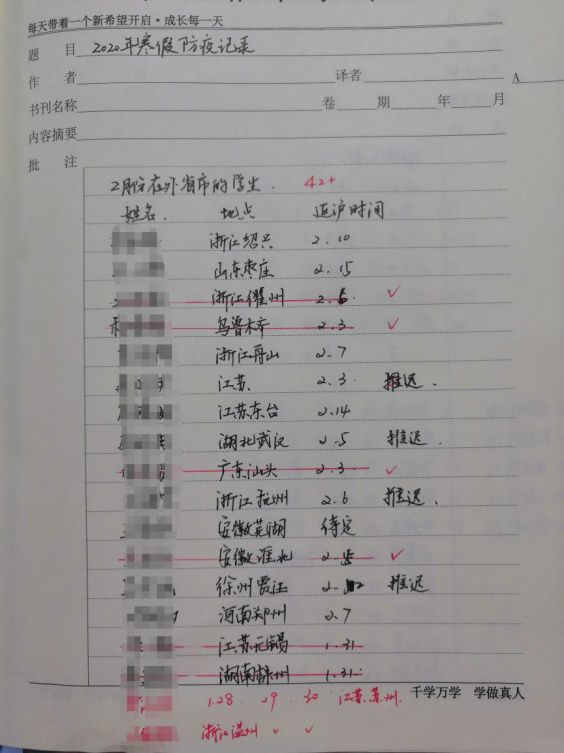 每天带着一个新希望开启·成长每一天
题 目 2020年寒假防疫记录
作 者 译者 A
书刊名称 卷 期 年 月
内容摘要
批 注
2月份在外省市的学生. 42+
姓名. 地点 返沪时间
浙江绍兴 2.10
山东枣庄 2.15
浙江衢州 2.6 ✓
乌鲁木齐 2.3 ✓
浙江舟山 2.7
江苏 2.3 推迟.
江苏东台 2.14
湖北武汉 2.5 推迟.
广东汕头 2.3 ✓
浙江杭州 2.6 推迟.
安徽芜湖 待定
安徽淮北 2.5 ✓
徐州 2. 推迟
河南郑州 2.7
江苏无锡 1.31
湖南 州 1.31
千学万学 学做真人
1.28 . 29 . 30 江苏.苏州.
浙江温州 ✓ ✓